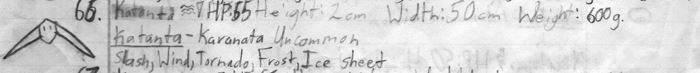 66. Katanta ≈∇ HP:55 Height: 2cm Width: 50cm Weight: 600g.
Katanta - Karanata Uncommon
Slash, Wind, Tornado, Frost, Ice sheet